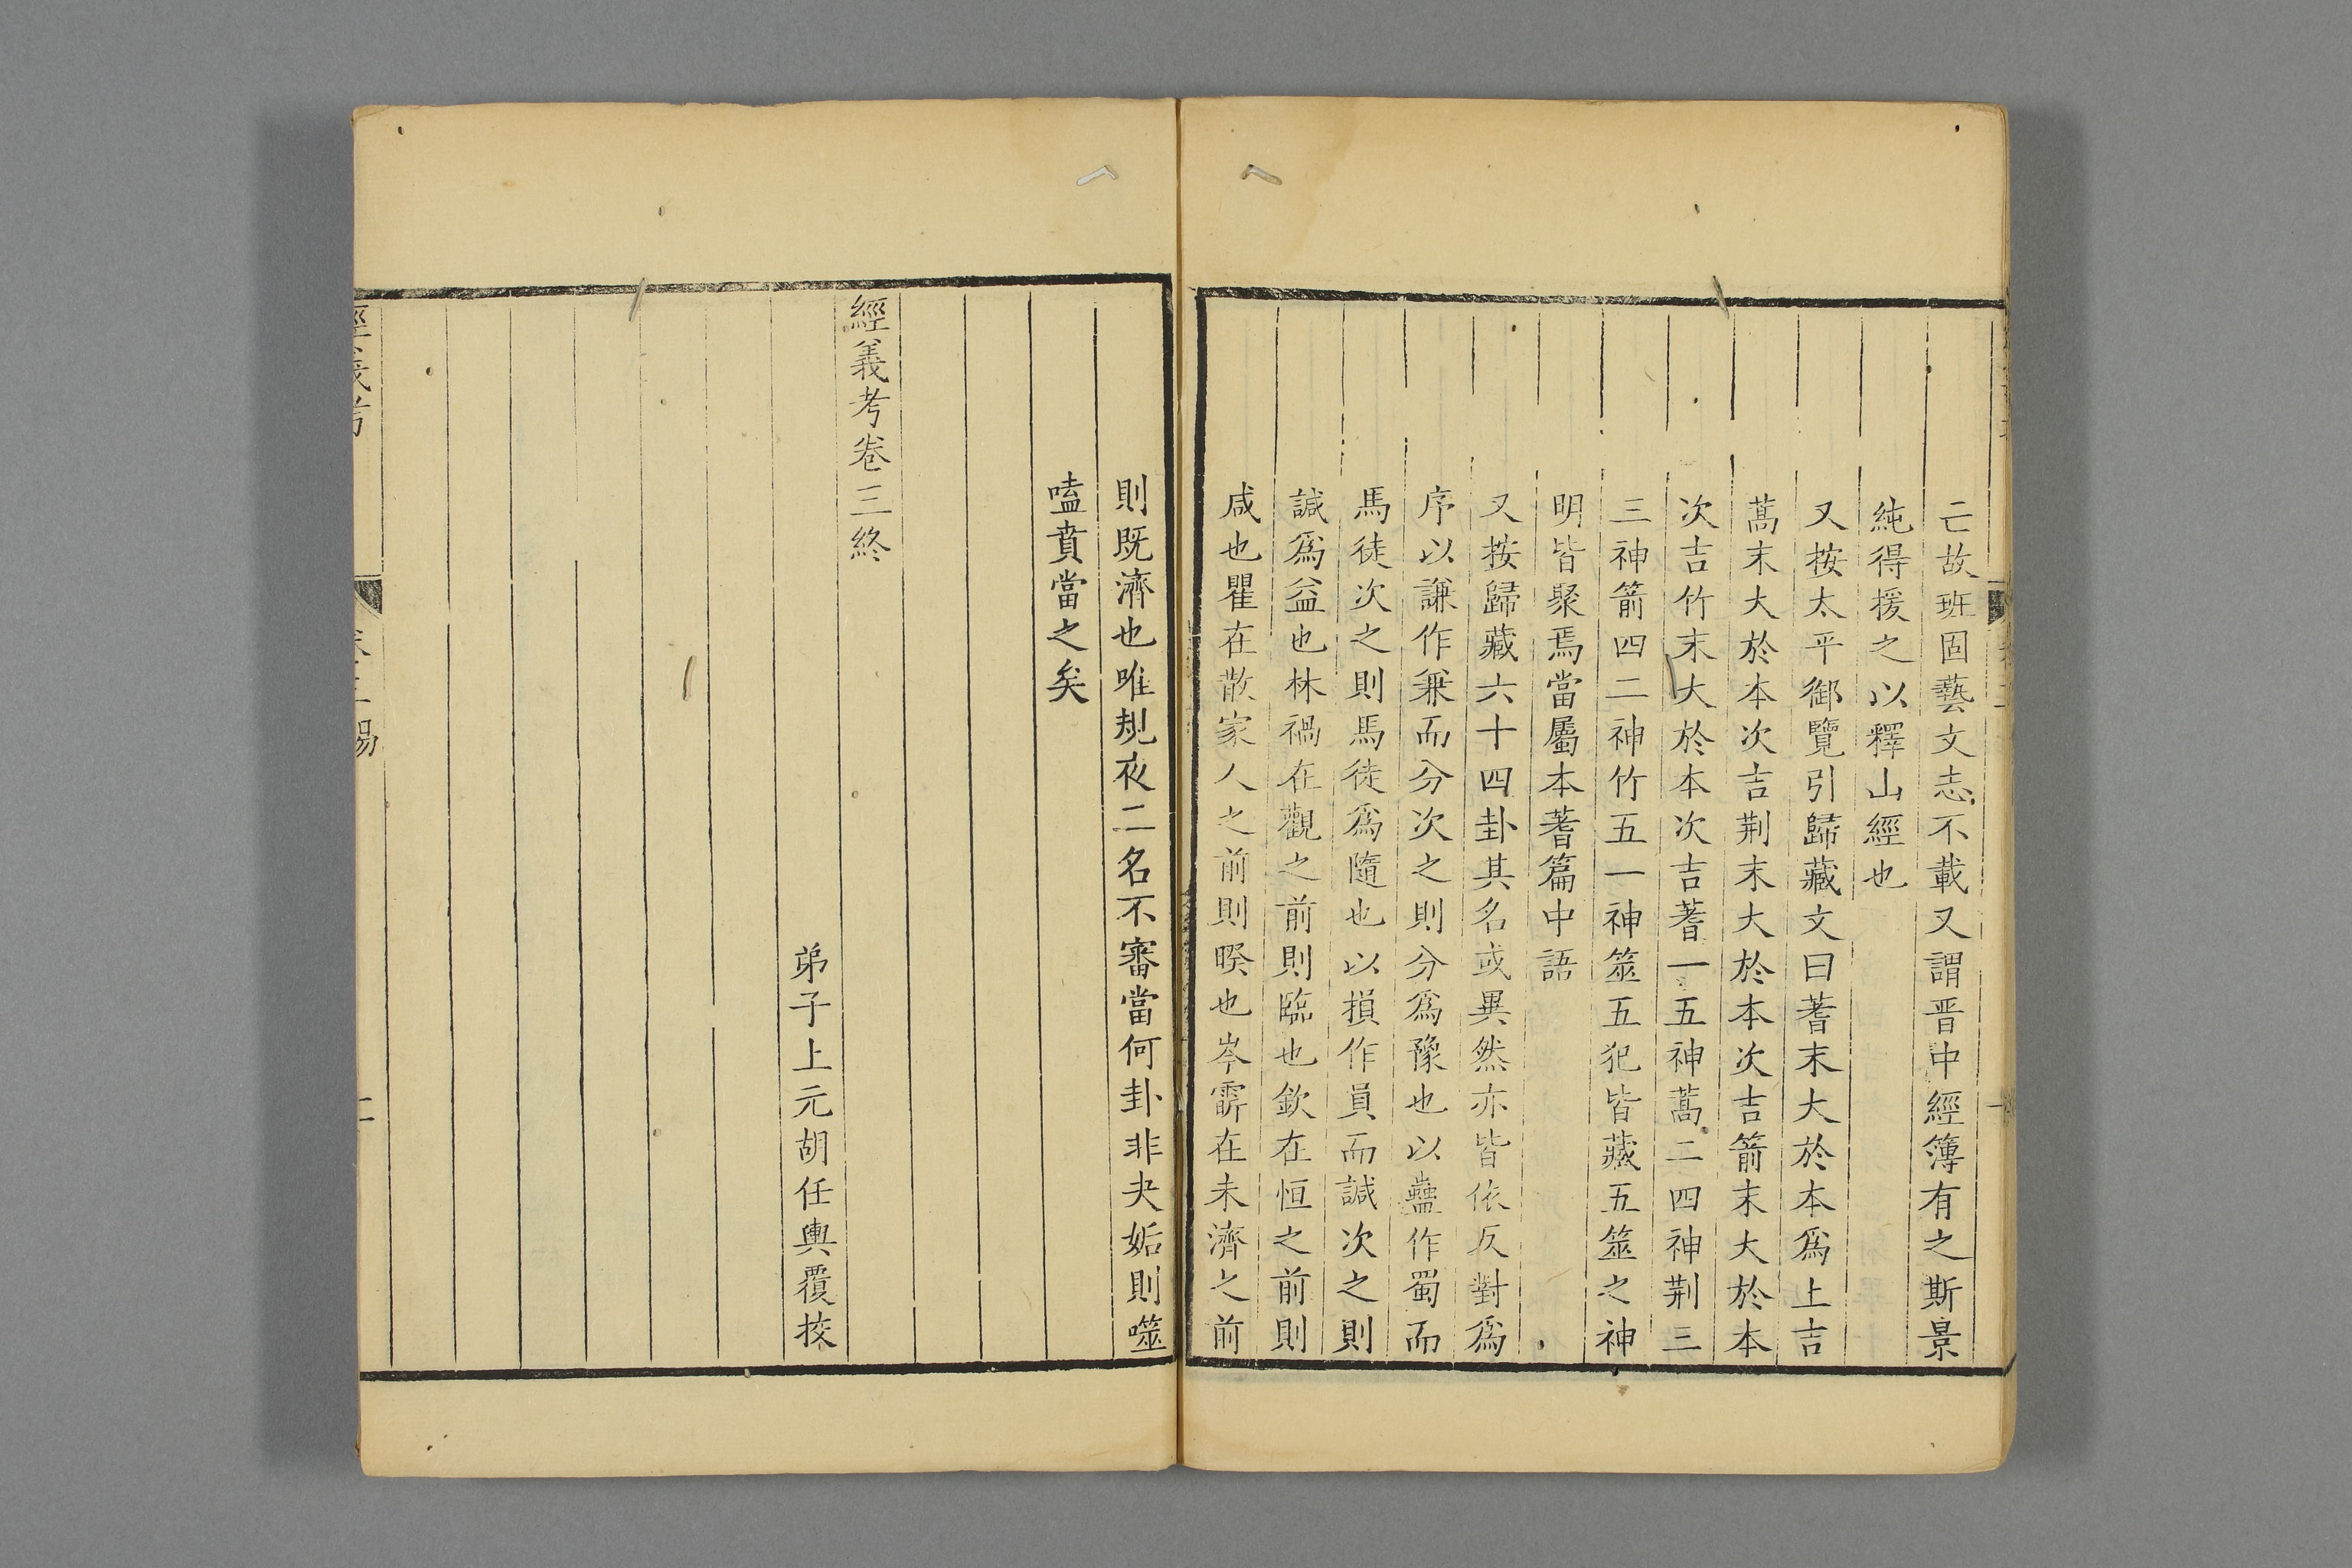 亡故班固藝文志不載又謂晋中經簿有之斯景
純得援之以釋山經也
又按太平御覽引歸藏文曰蓍末大於本爲上吉
蒿末大於本次吉荆末大於本次吉箭末大於本
次吉竹末大於本次吉蓍一五神蒿二四神荆三
三神箭四二神竹五一神筮五犯皆藏五筮之神
明皆聚焉當屬本蓍篇中語
又按歸藏六十四卦其名或異然亦皆依反對爲
序以謙作兼而分次之則分爲豫也以蠱作蜀而
馬徒次之則馬徒爲隨也以損作員而諴次之則
諴爲益也林禍在觀之前則臨也欽在恒之前則
咸也瞿在散家人之前則睽也岑霨在未濟之前
則既濟也唯規夜二名不審當何卦非夬姤則噬
嗑賁當之矣
經義考卷三終
弟子上元胡任輿覆挍
經義考
卷三 易